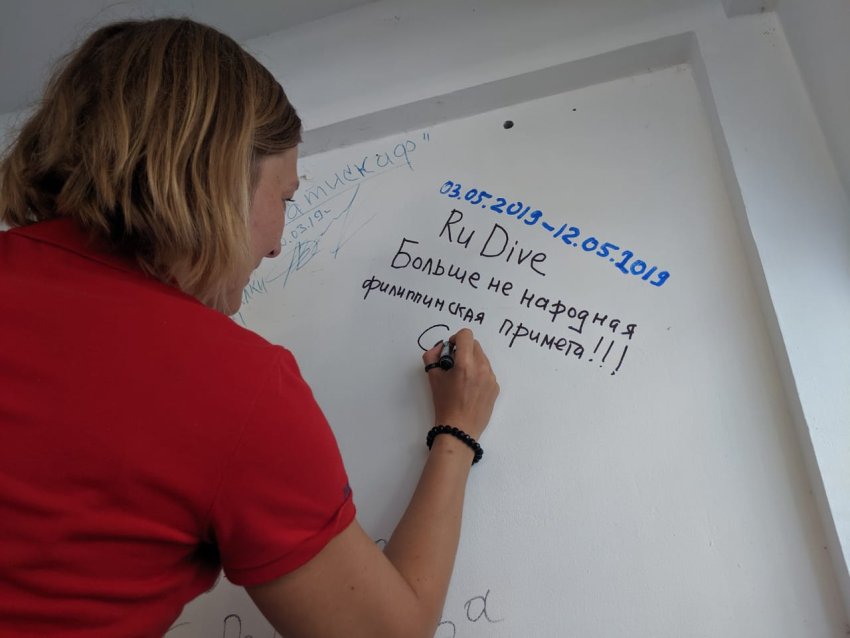 03.05.2019-12.05.2019
Ru Dive
Больше не народная
филиппинская примета!!!
С